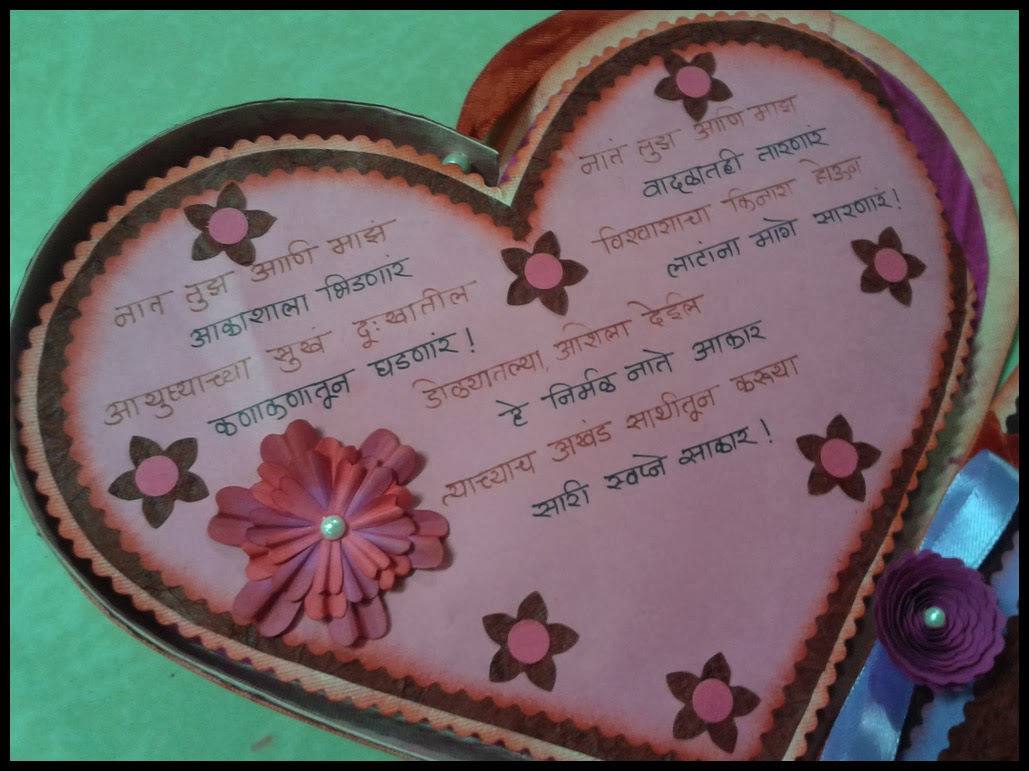 नातं तुझं आणि माझं
आकाशाला भिडणारं
आयुष्याच्या सुखं दूःखातील
कणाकणातून घडणारं!
नातं तुझं आणि माझं
वादळातही तारणारं
विश्वासाचा किनारा होऊन
लाटांना मागे सारणारं!
डोळ्यातल्या, आशेला देईल
हे निर्मळ नाते आकार
त्याच्याच अखंड साथीतून करूया
सारी स्वप्ने साकार!